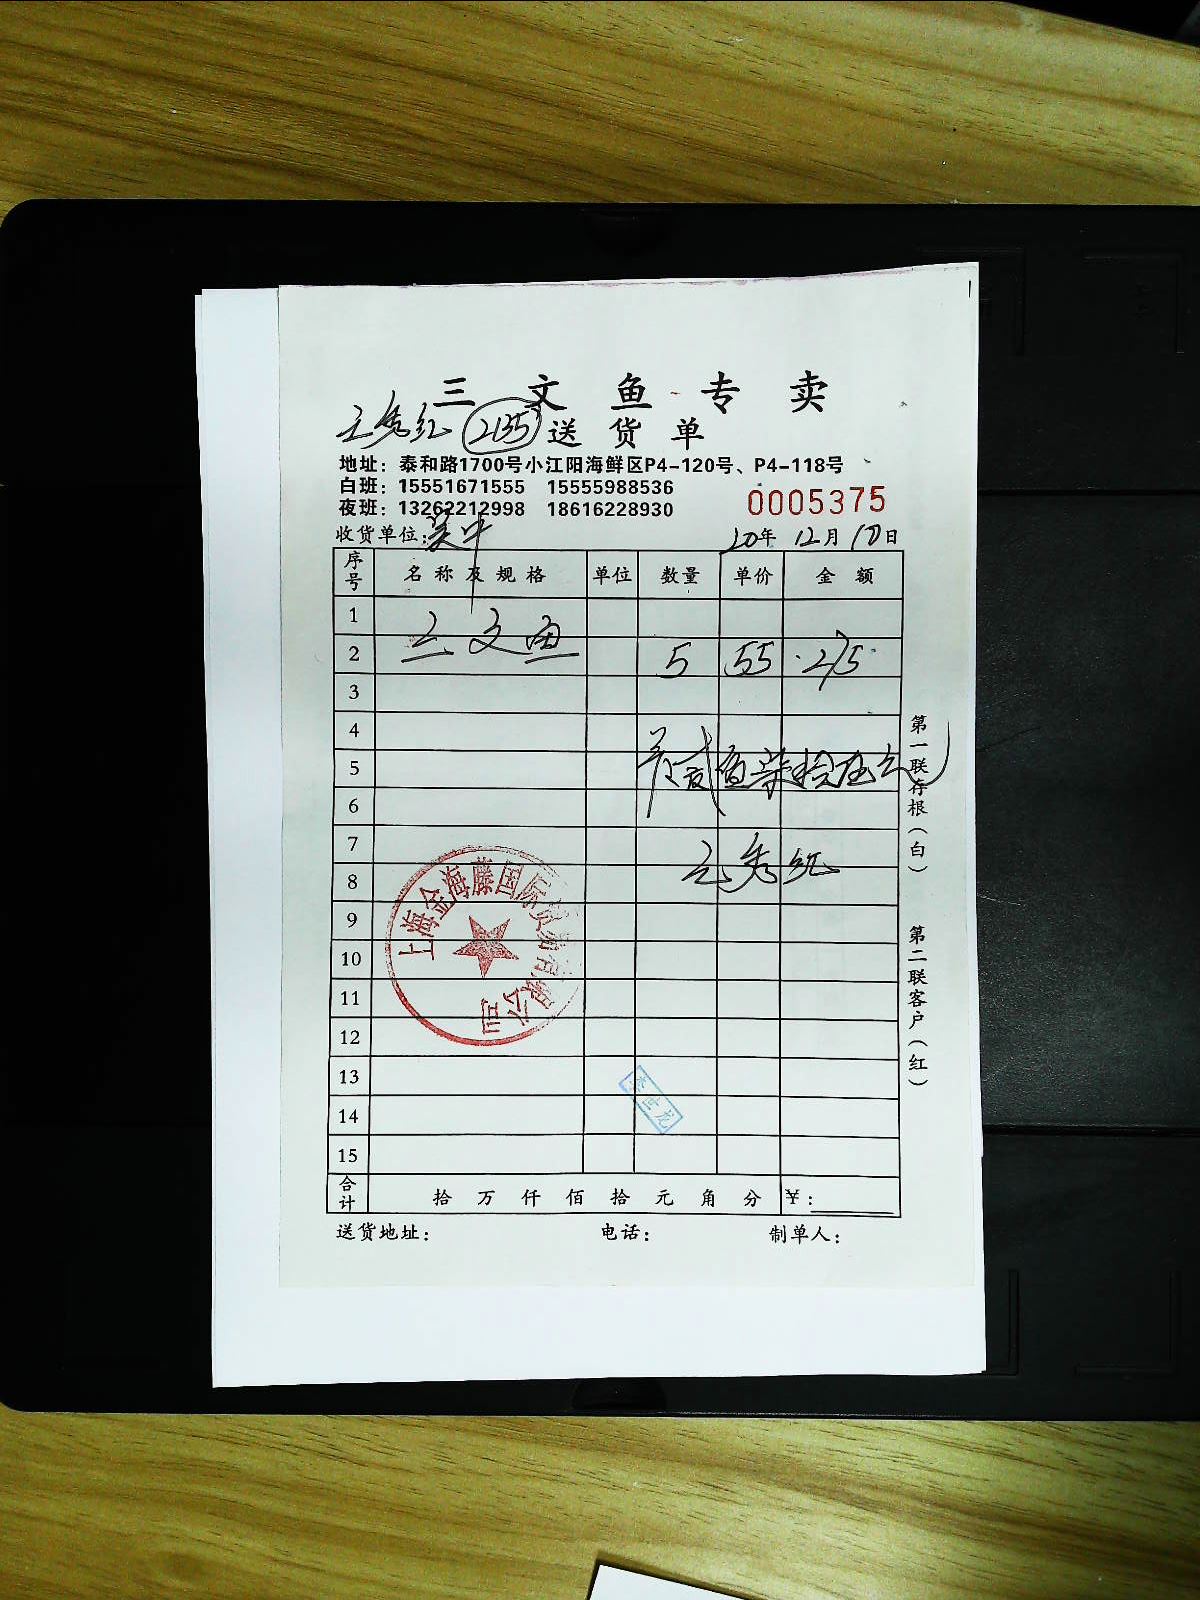 三文鱼专卖
王秀红 2135 送货单
地址：泰和路1700号小江阳海鲜区P4-120号、P4-118号
白班：15551671555 15555988536
夜班：13262212998 18616228930
0005375
收货单位：吴中 20年12月17日
序号 名称及规格 单位 数量 单价 金额
1
2 三文鱼 5 55 275
3
4
5 贰佰柒拾伍元
6
7
8 王秀红
9
10
11
12
13
14
15
合计 拾 万 仟 佰 拾 元 角 分 ￥：
送货地址： 电话： 制单人：
第一联存根（白）
第二联客户（红）
上海金海藤国际贸易有限公司
李世龙